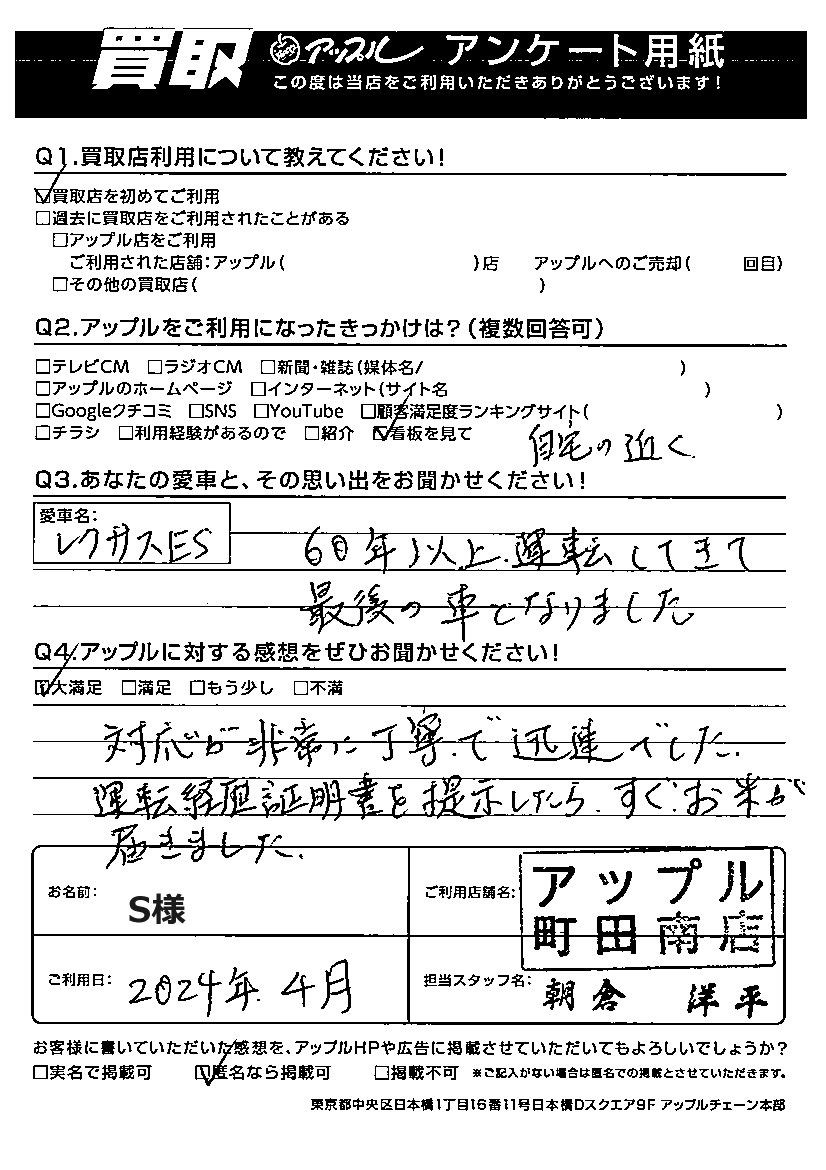 買取 アップル アンケート用紙
この度は当店をご利用いただきありがとうございます!
Q1.買取店利用について教えてください!
☑買取店を初めてご利用
□過去に買取店をご利用されたことがある
□アップル店をご利用
ご利用された店舗:アップル( )店 アップルへのご売却( 回目)
□その他の買取店( )
Q2.アップルをご利用になったきっかけは?(複数回答可)
□テレビCM □ラジオCM □新聞・雑誌(媒体名/ )
□アップルのホームページ □インターネット(サイト名 )
□Googleクチコミ □SNS □YouTube □顧客満足度ランキングサイト( )
□チラシ □利用経験があるので □紹介 ☑看板を見て 自宅の近く
Q3.あなたの愛車と、その思い出をお聞かせください!
愛車名:
レクサスES 60年以上運転してきて
最後の車となりました
Q4.アップルに対する感想をぜひお聞かせください!
☑大満足 □満足 □もう少し □不満
対応が非常に丁寧で迅速でした.
運転経歴証明書を提示したら、すぐお米が
届きました.
お名前: S様
ご利用店舗名: アップル
町田南店
ご利用日: 2024年.4月
担当スタッフ名: 朝倉 洋平
お客様に書いていただいた感想を、アップルHPや広告に掲載させていただいてもよろしいでしょうか?
□実名で掲載可 ☑匿名なら掲載可 □掲載不可 ※ご記入がない場合は匿名での掲載とさせていただきます。
東京都中央区日本橋1丁目16番11号日本橋Dスクエア9F アップルチェーン本部